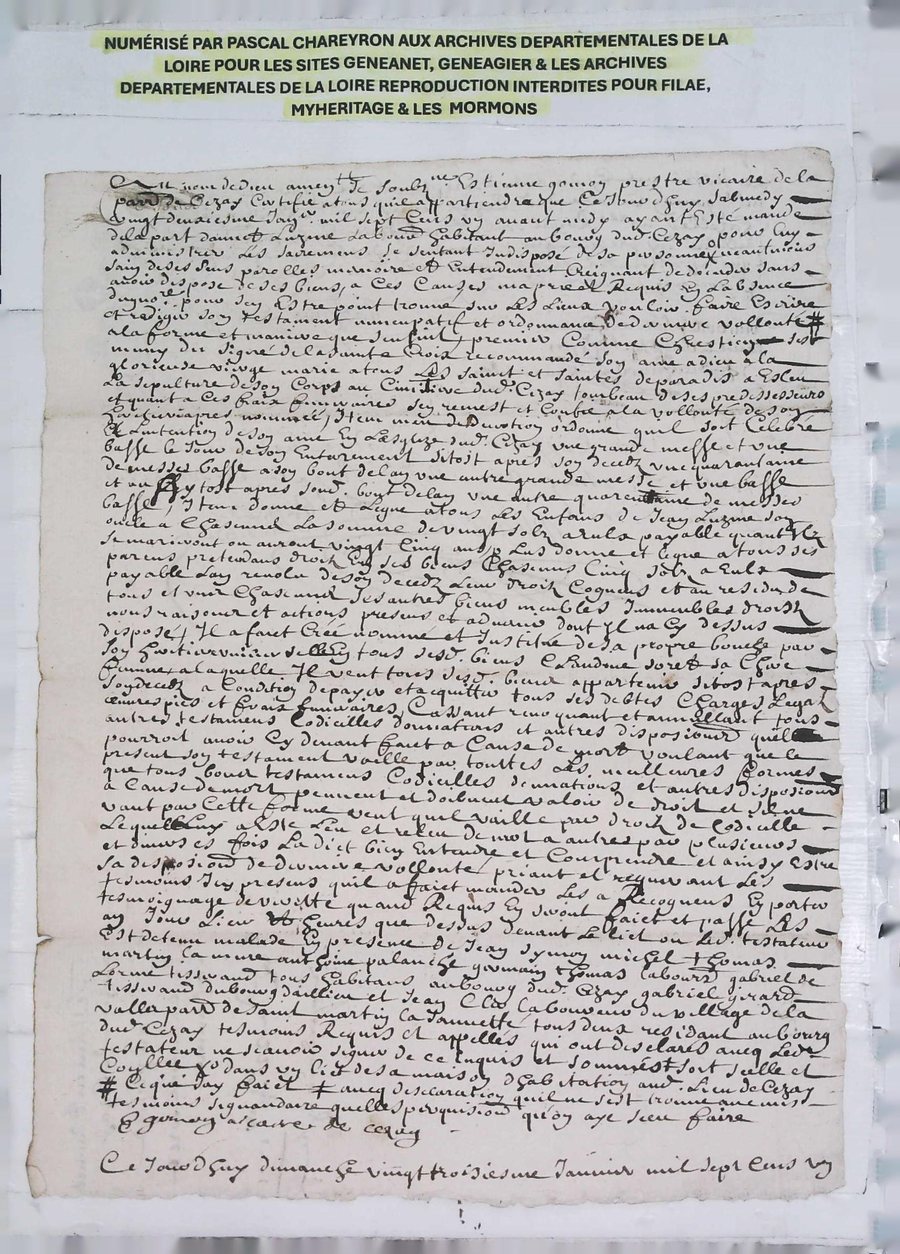 NUMÉRISÉ PAR PASCAL CHAREYRON AUX ARCHIVES DEPARTEMENTALES DE LA
LOIRE POUR LES SITES GENEANET, GENEAGIER & LES ARCHIVES
DEPARTEMENTALES DE LA LOIRE REPRODUCTION INTERDITES POUR FILAE,
MYHERITAGE & LES MORMONS
Au nom de dieu amen Je soubz.ne Estienne gomon prestre vicaire de la
parr de Cezay Certifie a tous quil appartiendra que Cejourdhuy sabmedy
vingt deuxiesme Jan.er mil sept Cens un avant midy ayant Esté mandé
de la part dannet Luzme Labour habitant au bourg dud. Cezay pour luy
administrer Les sacremens se sentant Indisposé de sa personne neantmoins
sain de ses sens parolles memoire et Entendement Creignant de deceder sans
avoir disposé de ses biens, a Ces Causes ma prié et Requis En Labsence
du notre pour ney Estre point trouvé sur Les Lieux vouloir faire Escrire
et rediger son testament nuncupatif et ordonnance de derniere vollonté #
a la forme et maniere que sensuit, premier Comme Chrestien sest
muny du signe de la sainte Croix recommandé son ame a dieu a la
glorieuse vierge marie a tous Les saints et saintes de paradis a Esleu
La sepulture de son Corps au Cimitiere dud. Cezay tombeau de ses predessesseurs
et quant a Ces frais funeraires sen remest et Confie a la vollonté de son
heritiere apres nommée, Item meu de devotion ordonne quil soit Celebré
a Lintention de son ame En Lesglize dud. Cezay une grande messe et une
basse le Jour de son Enterrement sitost apres son decedz une quarantaine
de messes basse a son bout de lan une autre grande messe et une basse
et au sytost apres sond. bout de lan une autre quarentaine de messes
basse, Item donne et Legue a tous Les Enfans de Jean Luzme son
oncle a Chascung La somme de vingt solz a Eulx payable quant Ilz
se marieront ou auront vingt Cinq ans, plus donne et legue a tous ses
parens pretendans droit En ses biens Chascung Cinq solz a Eulx
payable Lan revolu de son decedz Leur droit Cogneus et au residu de
tous et un Chascung ses autres biens meubles Immeubles droitz
noms raisons et actions presens et advenir dont Il na Cy dessus
disposé, Il a faict Créé nommé et Institué de sa propre bouche par
son heritiere tous sesd. biens sa Chere
femme, a laquelle Il veut tous sesd. biens appartenir sitost apres
son decedz a Condition de payer et acquitter tous ses debtes Charges Legatz
œuvres pies et frais funeraires, Cassant revoquant et annullant tous
autres testamens Codicilles donnations et autres dispositions quil
pourroit avoir Cy devant faict a Cause de mort voulant que le
present son testament vaille par touttes Les meilleures formes
que tous bons testamens Codicilles donnations et autres dispositions
a Cause de mort peuvent et doibvent valoir de droit et sil ne
vaut par Cette forme veut quil vaille par droit de Codicille
Lequel Luy a Esté Leu et releu de mot a autres par plusieurs
et diverses fois La dict bien Entendre et Comprendre et ainsy Estre
sa disposition de derniere vollonté, priant et requerant Les
tesmoins Icy presens quil a faict mander Les a Recogneus En porter
tesmoignage de verité quand Requis En seront faict et passé Les
an Jour Lieu et heures que dessus devant Le lict ou Led. testateur
Est detenu malade En presence de Jean symon michel thomas
martin la mure anthoine palanche germain thomas labour gabriel de
Lorme tisserand tous habitans au bourg dud. Cezay gabriel girard
tisserand du bourg dailleux et Jean Clos laboureur du village de la
valla parr de saint martin la sauvetté tous deux residant au bourg
dud. Cezay tesmoins Requis et appelles qui ont desclarés aveq Led.
testateur ne scavoir signer de ce inquis et sommés soit scelle et
dans un Lies de sa maison dhabitation aud. Lieu de Cezay
# Ce que Jay faict # aveq desclaration quil ne sest trouvé aucuns
tesmoins signandaire quelles perquisition quon aye sceu faire
E gomon vicaire de cezay
Ce Jourdhuy dimanche vingt troisiesme Janvier mil sept Cens un